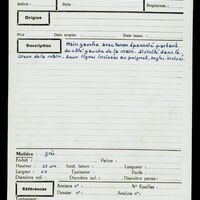 Indice :
Emplacem. :
Origine
Prix
Date
Acquisition
Description
Main gauche avec tenon épannelé partant
du côté gauche de la main. Divinité dans le
creux de la main. Deux lignes incisées au poignet. Ongles incisés.
Matière : grès
Enduit : Patine :
Hauteur : 25 cm haut. tenon : Longueur :
Largeur : 20 Diamètre : Epaisseur :
Diamètre col. Diamètre pan. :
Références
Ancien n° : N° Fouilles :
Dossier n° : Analyse n° :
Traitement :